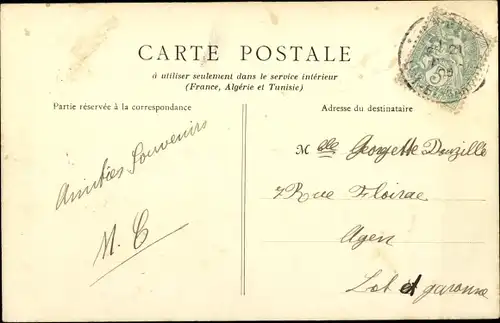 CARTE POSTALE
à utiliser seulement dans le service intérieur
(France, Algérie et Tunisie)
Partie réservée à la correspondance
Adresse du destinataire
Amitiés Souvenirs
M. C
Mlle Georgette Douzille
Rue Floirac
Agen
Lot et garonne